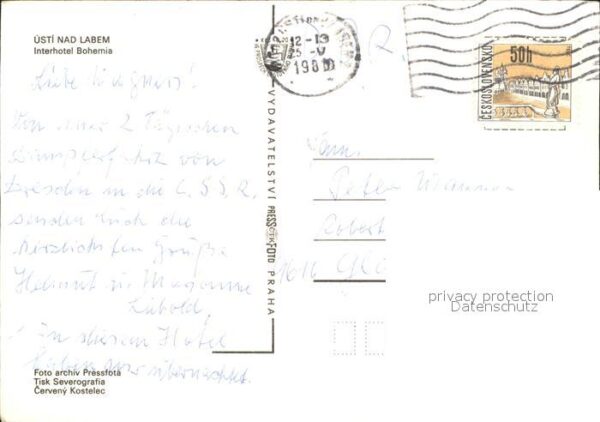 ÚSTÍ NAD LABEM
Interhotel Bohemia
Liebe
Von einer 2 Tägischen
Dampferfahrt von
Dresden in die C.S.S.R.
senden Euch die
herzlichsten Grüße
Helmut u. Marianne
Libold.
In diesem Hotel
haben wir übernachtet.
Foto archiv Pressfoto
Tisk Severografia
Červený Kostelec
VYDAVATELSTVÍ PRESSFOTO PRAHA
12-13
ČESKOSLOVENSKO
50h
Fam.
Peter
Robert
privacy protection
Datenschutz